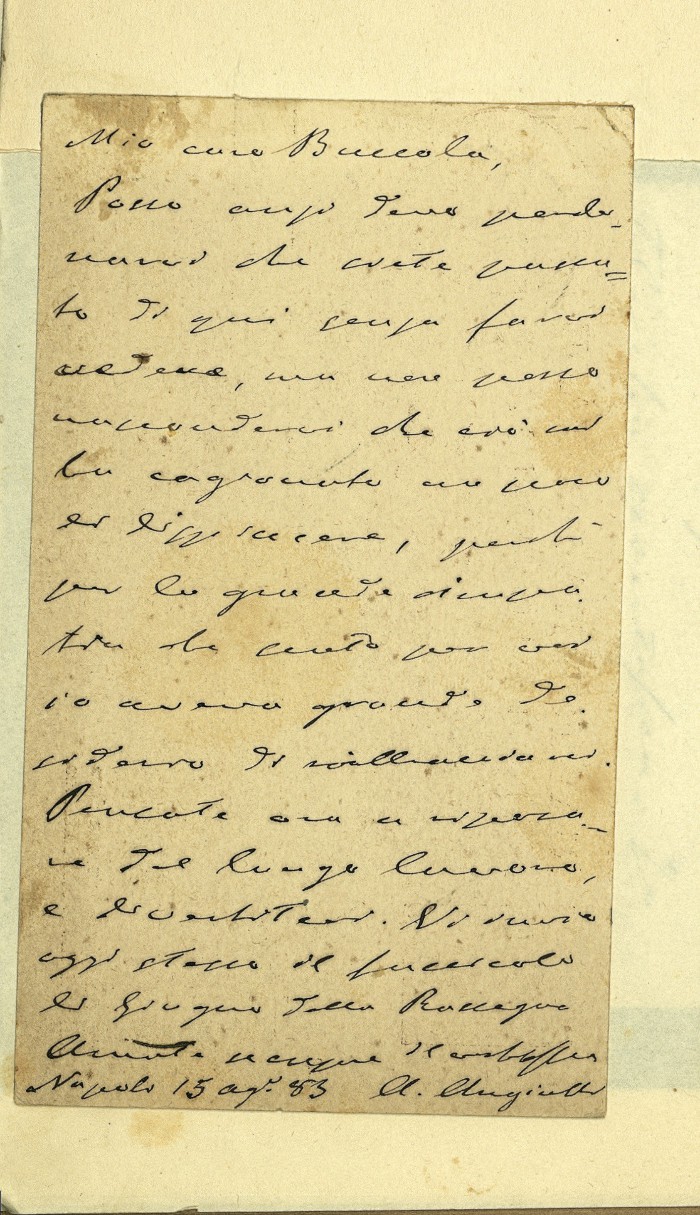 Mio caro Buccola,
Posso anzi devo perdo-
narvi che siete passa=
to di qui senza farvi
vedere, ma non posso
nascondervi che ciò mi
ha cagionato un poco
di dispiacere, perchè
per la grande simpa-
tia che sento per voi
io aveva grande de-
siderio di riabbracciarvi.
Pensate ora a riposa-
re del lungo lavoro,
e divertitevi. Vi invio
oggi stesso il fascicolo
di Giugno della Rassegna
Amate sempre il vostro
Napoli 15 ag. 83 A. Angiulli